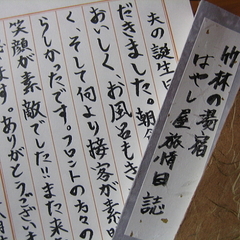 竹林の湯宿
はやし屋旅情日誌
夫の誕生日
だきました。朝
おいしく、お風呂もき
く、そして何より接客が素
らしかったです。フロントの方々の
笑顔が素敵でした!!また来
ます。ありがとうござい